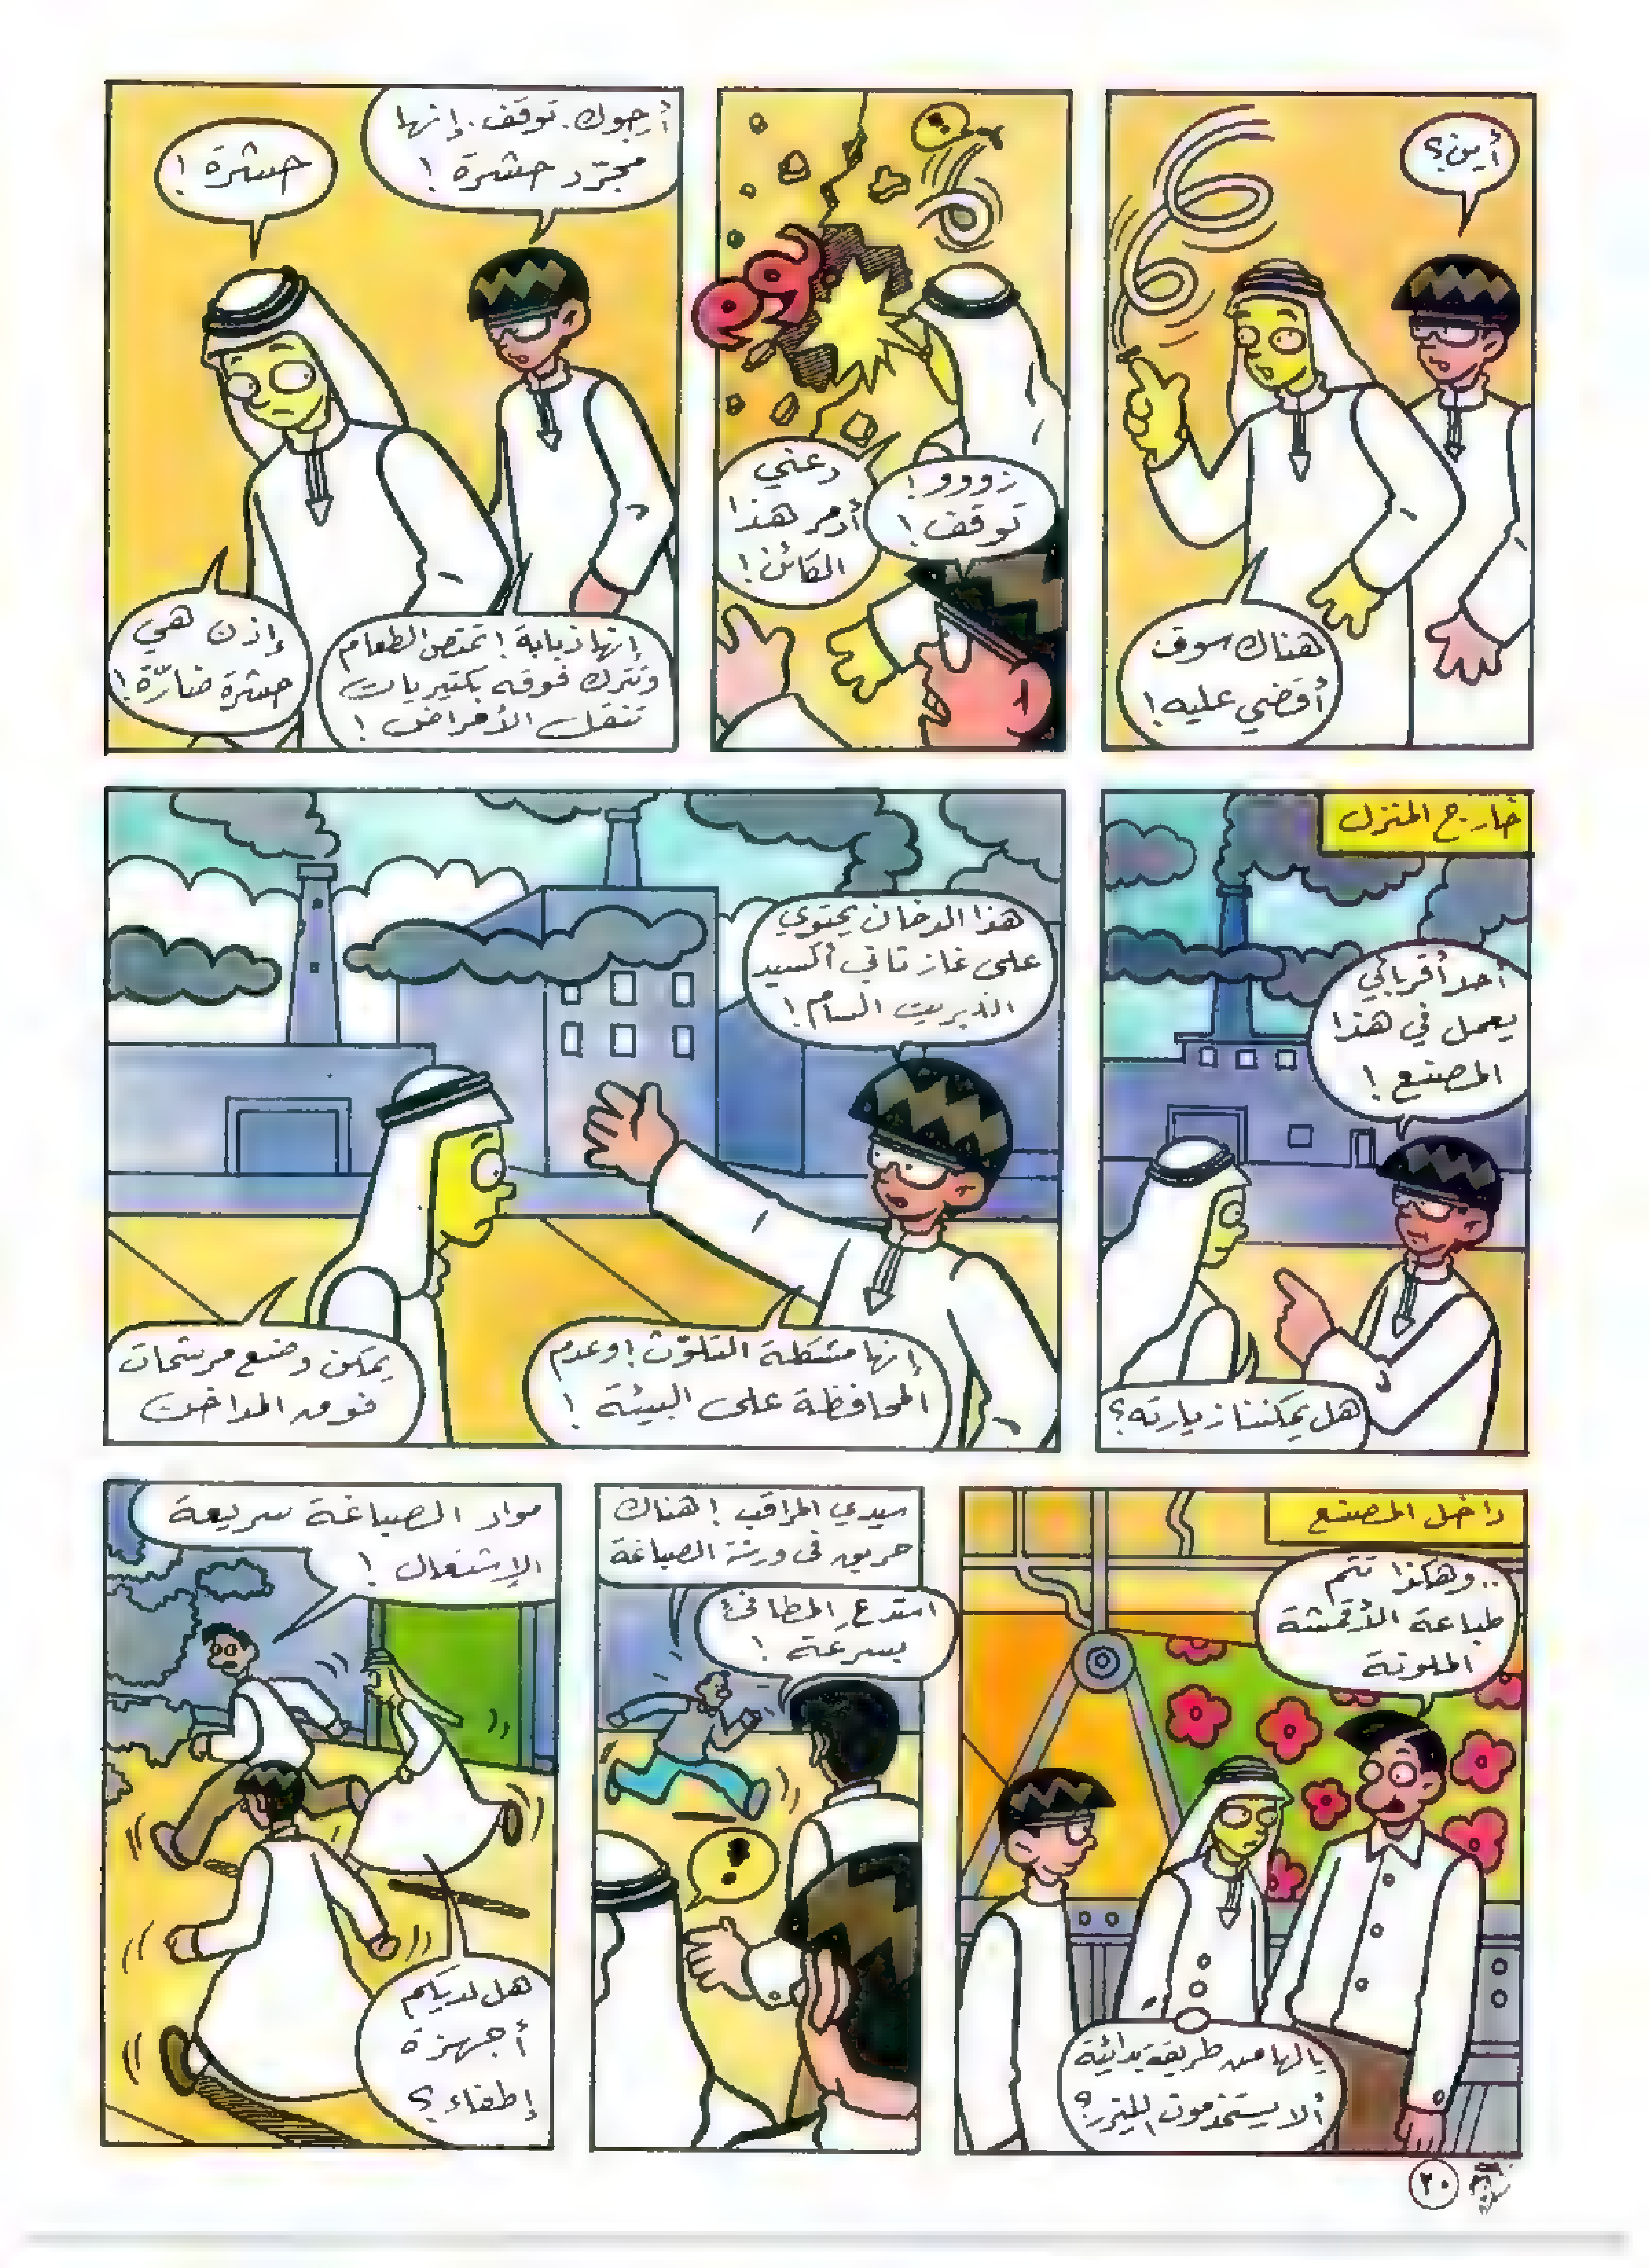 أين؟
هناك سوف
أقضي عليه!
زووو!
توقف!
دعني
أدمر هذا
الكائن!
أرجوك. توقف. إنها
مجرّد حشرة!
حشرة!
إنها ذبابة! تمتص الطعام
وتترك فوقه بكتيريات
تنقل الأمراض!
إذن هي
حشرة ضارّة!
خارج المنزل
أحد أقربائي
يعمل في هذا
المصنع!
هل يمكننا زيارته؟
هذا الدخان يحتوي
على غاز ثاني أكسيد
الكبريت السام!
إنها مشكلة التلوّث! وعدم
المحافظة على البيئة!
يمكن وضع مرشحات
فوق المداخن
داخل المصنع
..وهكذا تتم
طباعة الأقمشة
الملونة
يالها من طريقة بدائية
ألا يستخدمون الليزر؟
سيدي المراقب! هناك
حريق في ورشة الصباغة
استدعِ المطافئ
بسرعة!
!
مواد الصباغة سريعة
الإشتعال!
هل لديكم
أجهزة
إطفاء؟
٢٠